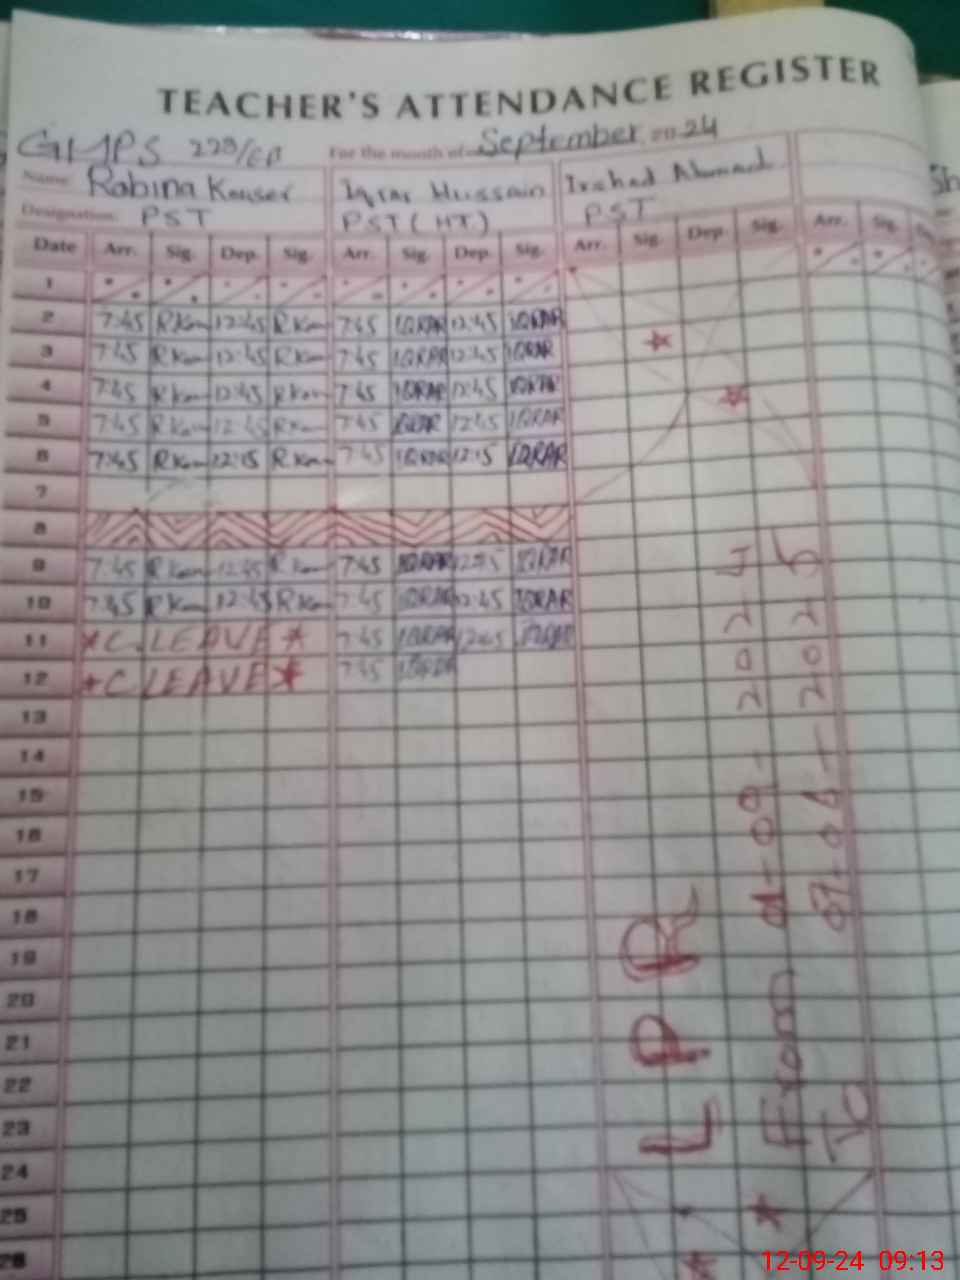 TEACHER'S ATTENDANCE REGISTER
GMPS 228/EB For the month of September 2024
Name: Robina Kouser Iqrar Hussain Irshad Ahmad
Designation: PST PST (HT) PST
Date Arr. Sig. Dep. Sig. Arr. Sig. Dep. Sig. Arr. Sig. Dep. Sig. Arr. Sig.
1
2 7:45 RKou 12:45 RKou 7:45 IQRAR 12:45 IQRAR
3 7:45 RKou 12:45 RKou 7:45 IQRAR 12:45 IQRAR
4 7:45 RKou 12:45 RKou 7:45 IQRAR 12:45 IQRAR
5 7:45 RKou 12:45 RKou 7:45 IQRAR 12:45 IQRAR
6 7:45 RKou 12:15 RKou 7:45 IQRAR 12:15 IQRAR
7
8
9 7:45 RKou 12:45 RKou 7:45 IQRAR 12:45 IQRAR
10 7:45 RKou 12:45 RKou 7:45 IQRAR 12:45 IQRAR
11 *C.LEAVE* 7:45 IQRAR 12:45 IQRAR
12 *C.LEAVE* 7:45 IQRAR
13
14
15
16
17
18
19
20
21
22
23
24
25
26
LPR
* From 01-09-2024
To 2025
12-09-24 09:13